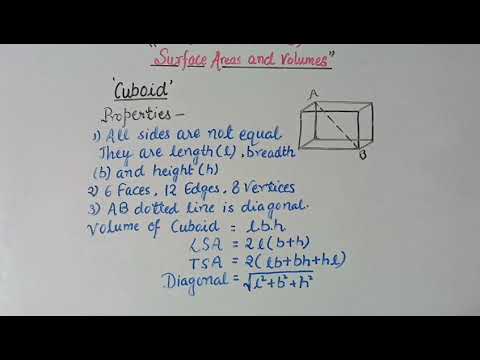 "
Surface Areas and Volumes"
'Cuboid'
Properties –
1) All sides are not equal
They are length(l), breadth
(b) and height(h)
2) 6 Faces, 12 Edges, 8 Vertices
3) AB dotted line is diagonal.
Volume of Cuboid = l.b.h
LSA = 2l(b+h)
TSA = 2(lb+bh+hl)
Diagonal = √l²+b²+h²
A
B